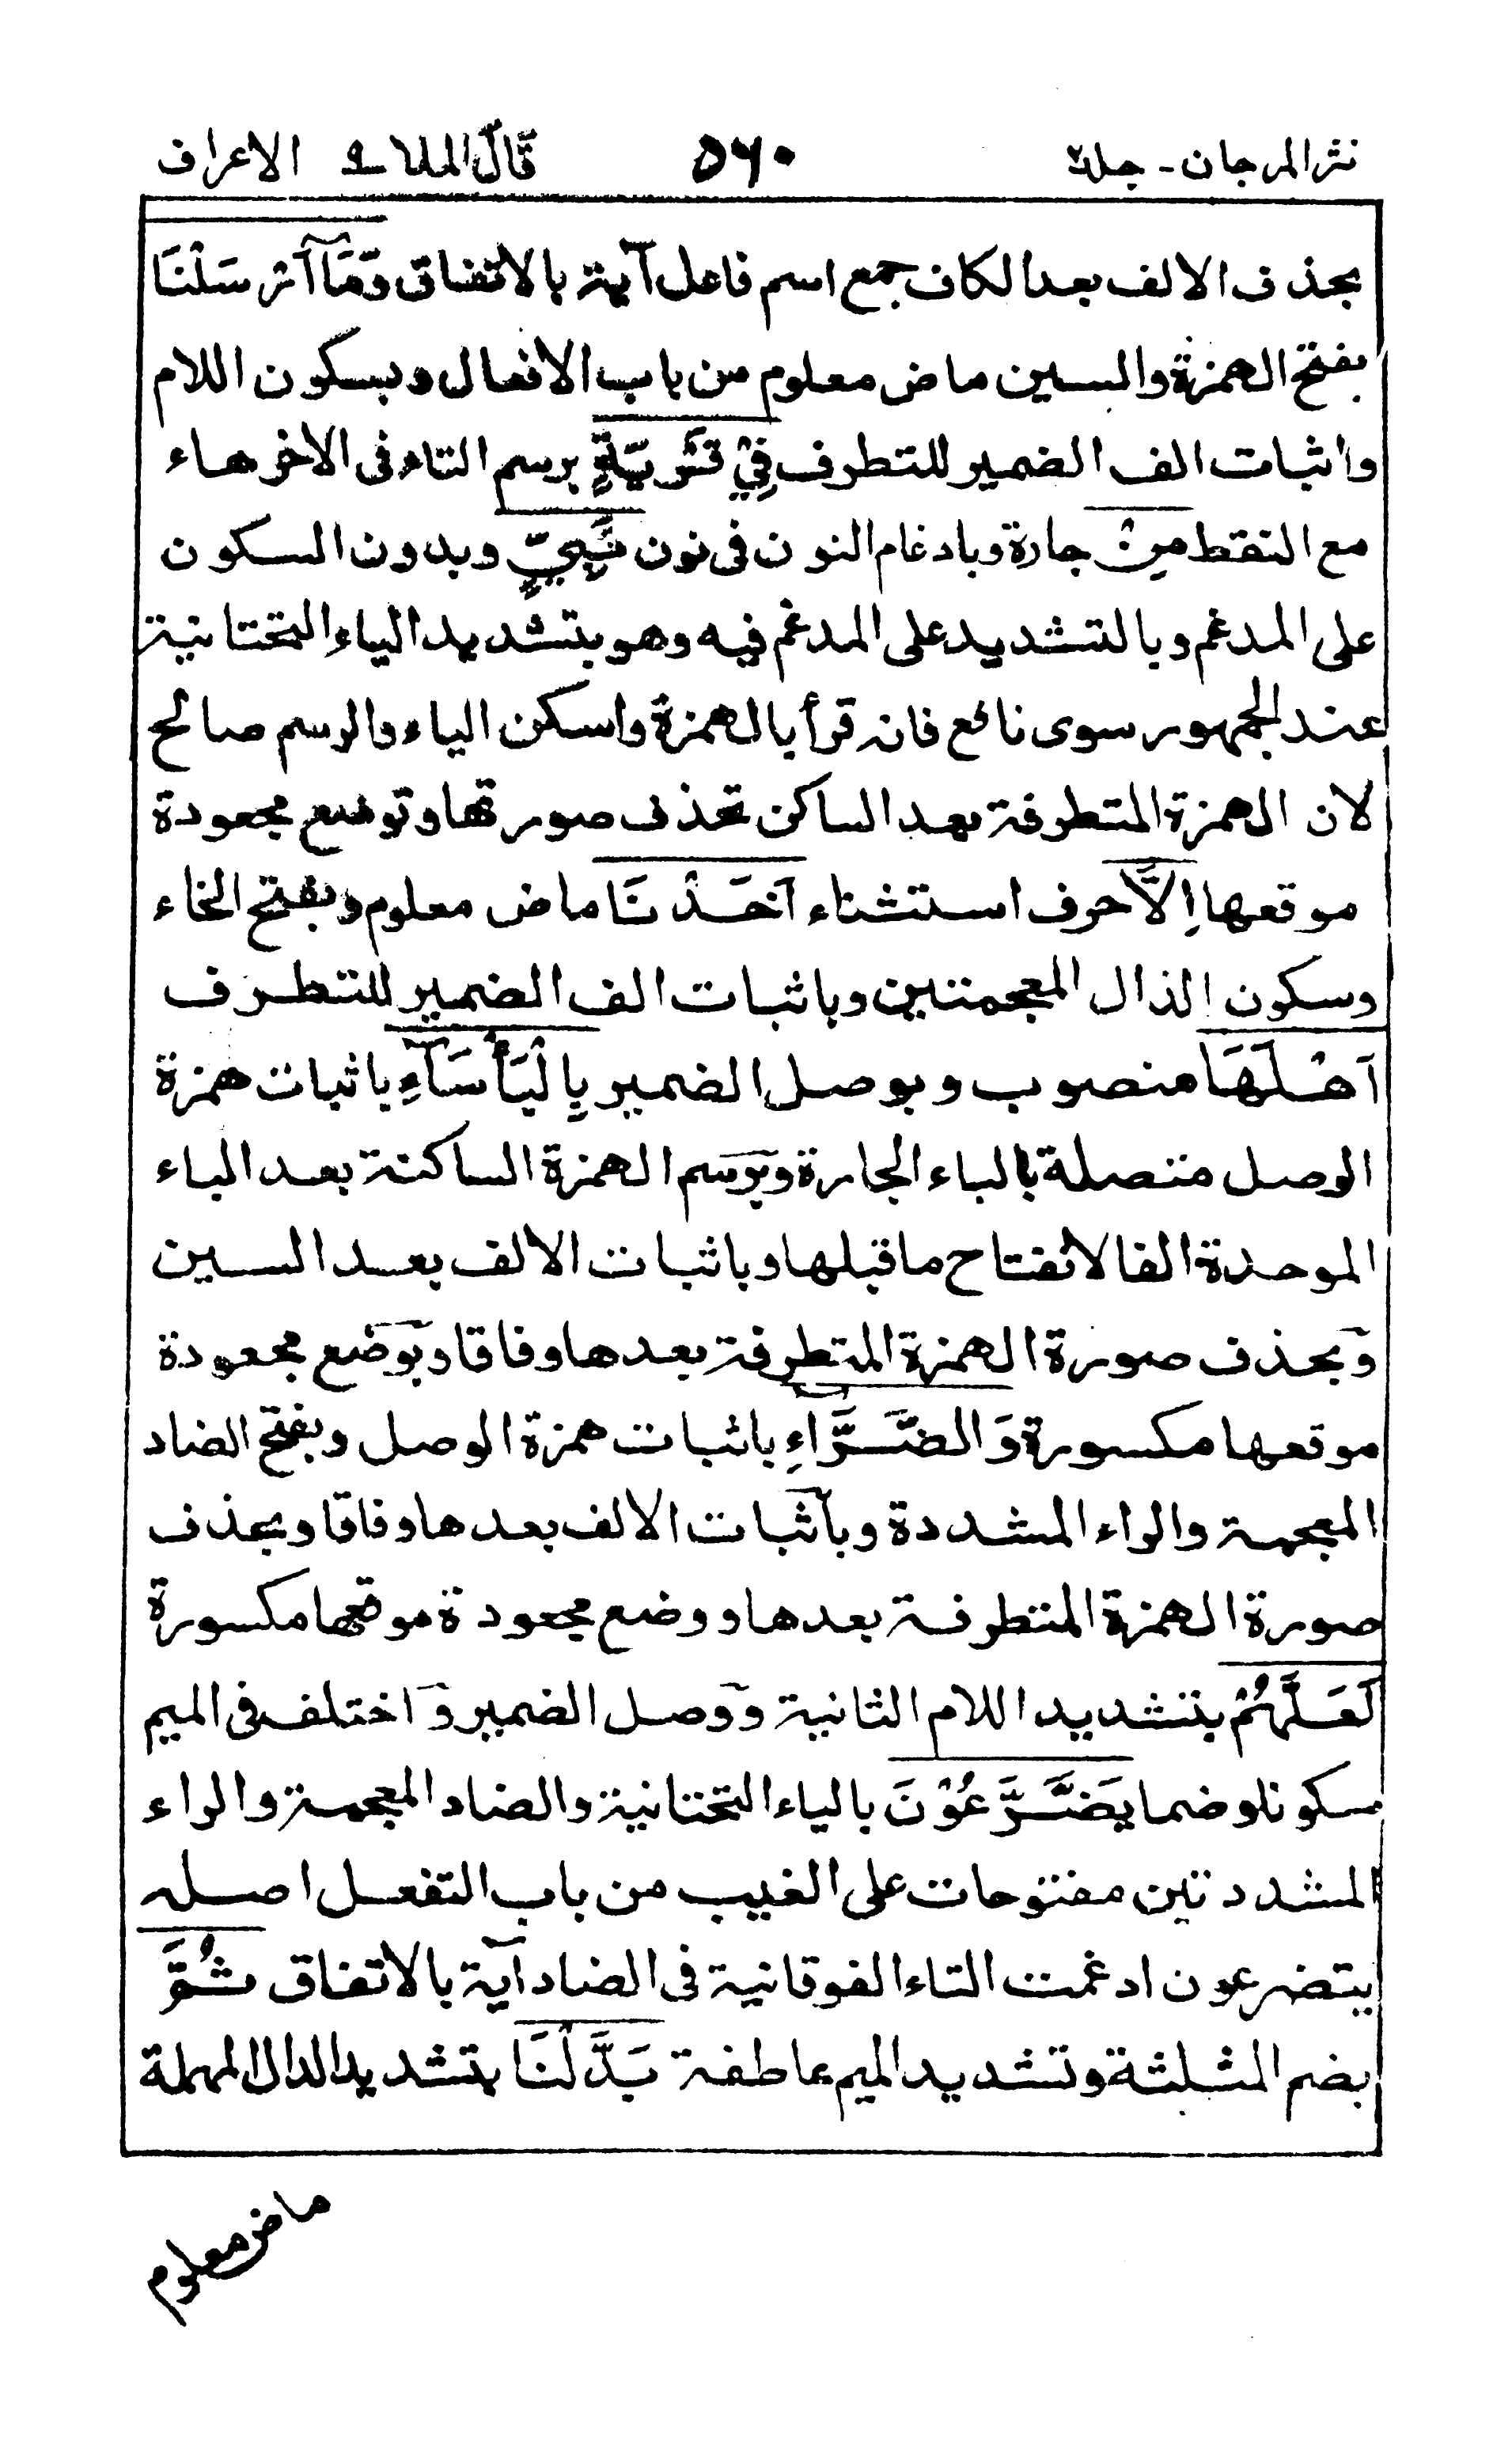 نثر المرجان - جلد٢ ۵۶۰ قال الملا ٩ الاعراف
بحذف الالف بعد الكاف جمع اسم فاعل آية بالاتفاق وَمَآ اَرْسَلْنَا
بفتح الهمزة والسين ماض معلوم من باب الافعال وبسكون اللام
واثبات الف الضمير للتطرف فِيْ قَرْيَةٍ برسم التاء فى الاخر هاء
مع النقط مِنْ جارة وبادغام النون فى نون نَّبِيٍّ وبدون السكون
على المدغم وبالتشديد على المدغم فيه وهو بتشديد الياء التحتانية
عند الجمهور سوى نافع فانه قرأ بالهمزة واسكن الياء والرسم صالح
لان الهمزة المتطرفة بعد الساكن تحذف صورتها وتوضع مجعودة
موقعها اِلَّا حرف استثناء اَخَذْنَا ماض معلوم وبفتح الخاء
وسكون الذال المعجمتين وباثبات الف الضمير للتطرف
اَهْلَهَا منصوب وبوصل الضمير بِالْبَأْسَآءِ باثبات همزة
الوصل متصلة بالباء الجارة وبرسم الهمزة الساكنة بعد الباء
الموحدة الفا لانفتاح ما قبلها وباثبات الالف بعد السين
وبحذف صورة الهمزة المتطرفة بعدها وفاقا وبوضع مجعودة
موقعها مكسورة وَالضَّرَّآءِ باثبات همزة الوصل وبفتح الضاد
المعجمة والراء المشددة وباثبات الالف بعدها وفاقا وبحذف
صورة الهمزة المتطرفة بعدها ووضع مجعودة موقعها مكسورة
لَعَلَّهُمْ بتشديد اللام الثانية ووصل الضمير واختلف فى الميم
سكونا وضما يَضَّرَّعُوْنَ بالياء التحتانية والضاد المعجمة والراء
المشددتين مفتوحات على الغيب من باب التفعل اصله
يتضرعون ادغمت التاء الفوقانية فى الضاد آية بالاتفاق ثُمَّ
بضم المثلثة وتشديد الميم عاطفة بَدَّلْنَا بتشديد الدال المهملة
ماض معلوم